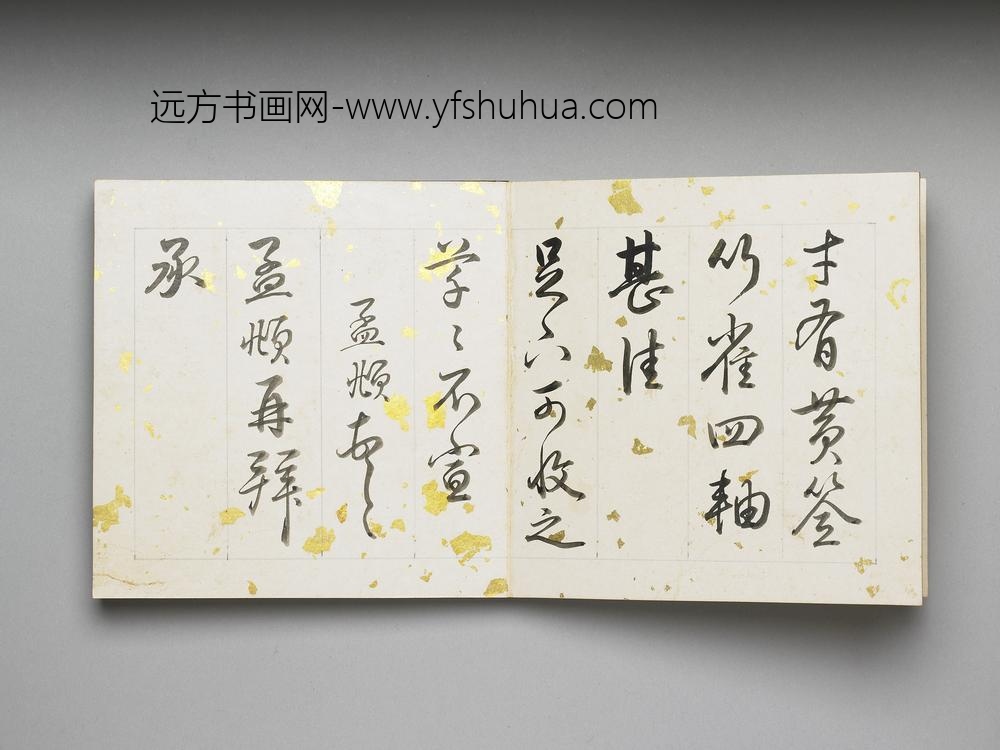 远方书画网-www.yfshuhua.com
才有黄筌
竹雀四軸
甚佳
足下可收之
草〻不宣
孟頫
孟頫再拜
承